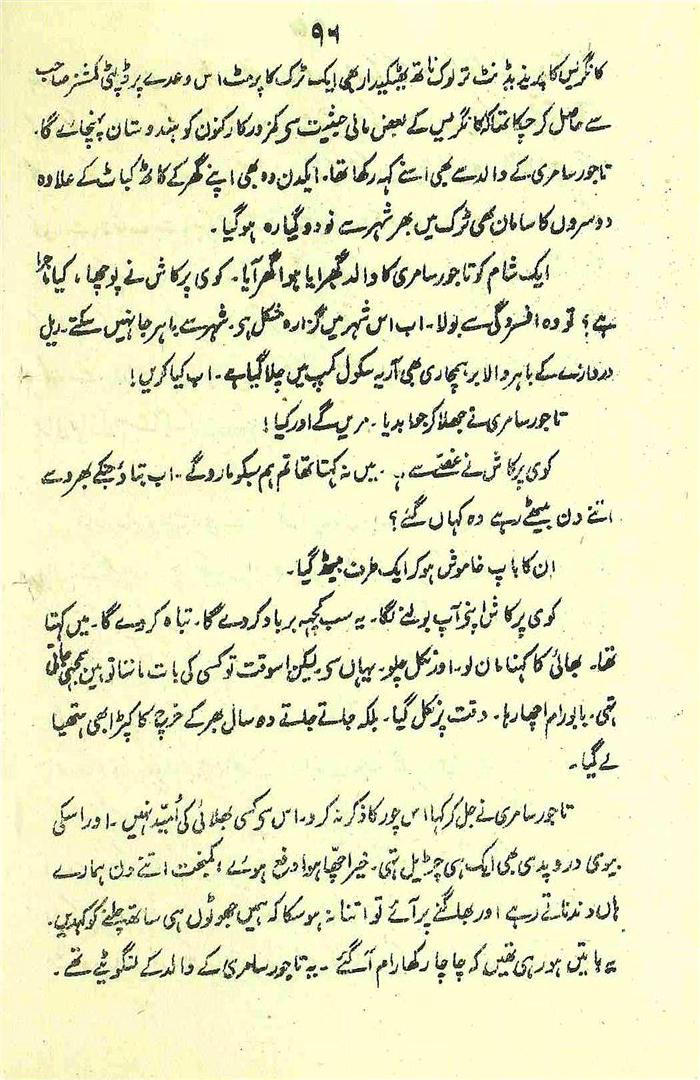 ۹۶
کانگریس کا پریذیڈنٹ ترلوک ناتھ ٹھیکیدار بھی ایک ٹرک کا پرمٹ اس وعدے پر ڈپٹی کمشنر صاحب
سے حاصل کر چکا تھا کہ کانگریس کے بعض مالی حیثیت سے کمزور کارکنوں کو ہندوستان پہنچائے گا۔
تاجور سامری کے والد سے بھی اسنے کہہ رکھا تھا۔ ایکدن وہ بھی اپنے گھر کے کاٹھ کباٹ کے علاوہ
دوسروں کا سامان بھی ٹرک میں بھر شہر سے نو دو گیارہ ہوگیا۔
ایک شام کو تاجور سامری کا والد گھبرایا ہوا گھر آیا۔ کوی پرکاش نے پوچھا، کیا ماجرا
ہے؟ تو وہ افسردگی سے بولا۔ اب اس شہر میں گزارہ مشکل ہے۔ شہر سے باہر جا نہیں سکتے۔ ریل
دروازے کے باہر والا برہمچاری بھی آریہ سکول کیمپ میں چلا گیا ہے۔ اب کیا کریں!
تاجور سامری نے جھلا کر جوابدیا۔ مریں گے اور کیا!
کوی پرکاش نے غصے سے ۔ میں نہ کہتا تھا تم ہم سبکو مارو گے۔ اب بتاؤ جنکے بھروسے
اتنے دن بیٹھے رہے وہ کہاں گئے؟
ان کا باپ خاموش ہو کر ایک طرف بیٹھ گیا۔
کوی پرکاش اپنے آپ بولنے لگا۔ یہ سب کچھ برباد کر دے گا۔ تباہ کر دے گا۔ میں کہتا
تھا۔ بھائی کا کہنا مان لو۔ اور نکل چلو۔ یہاں سے۔ لیکن اسوقت تو کسی کی بات ماننا توہین سمجھی جاتی
تہی۔ بابو رام اچھا رہا۔ وقت پر نکل گیا۔ بلکہ جاتے جاتے وہ سال بھر کے خرچ کا کپڑا بھی ہتھیا
لے گیا۔
تاجور سامری نے جل کر کہا اس چور کا ذکر نہ کرو۔ اس سے کسی بھلائی کی اُمید نہیں۔ اور اسکی
بیوی دروپدی بھی ایک ہی چڑیل تہی۔ خیر اچھا ہوا دفع ہوئے، کمبخت اتنے دن ہمارے
ہاں دندناتے رہے اور بھاگنے پر آئے تو اتنا نہ ہوسکا کہ ہمیں جھوٹوں ہی ساتھ چلنے کو کہدیں۔
یہ باتیں ہو رہی تھیں کہ چاچا رکھا رام آگئے۔ یہ تاجور سامری کے والد کے لنگوٹیے تھے۔